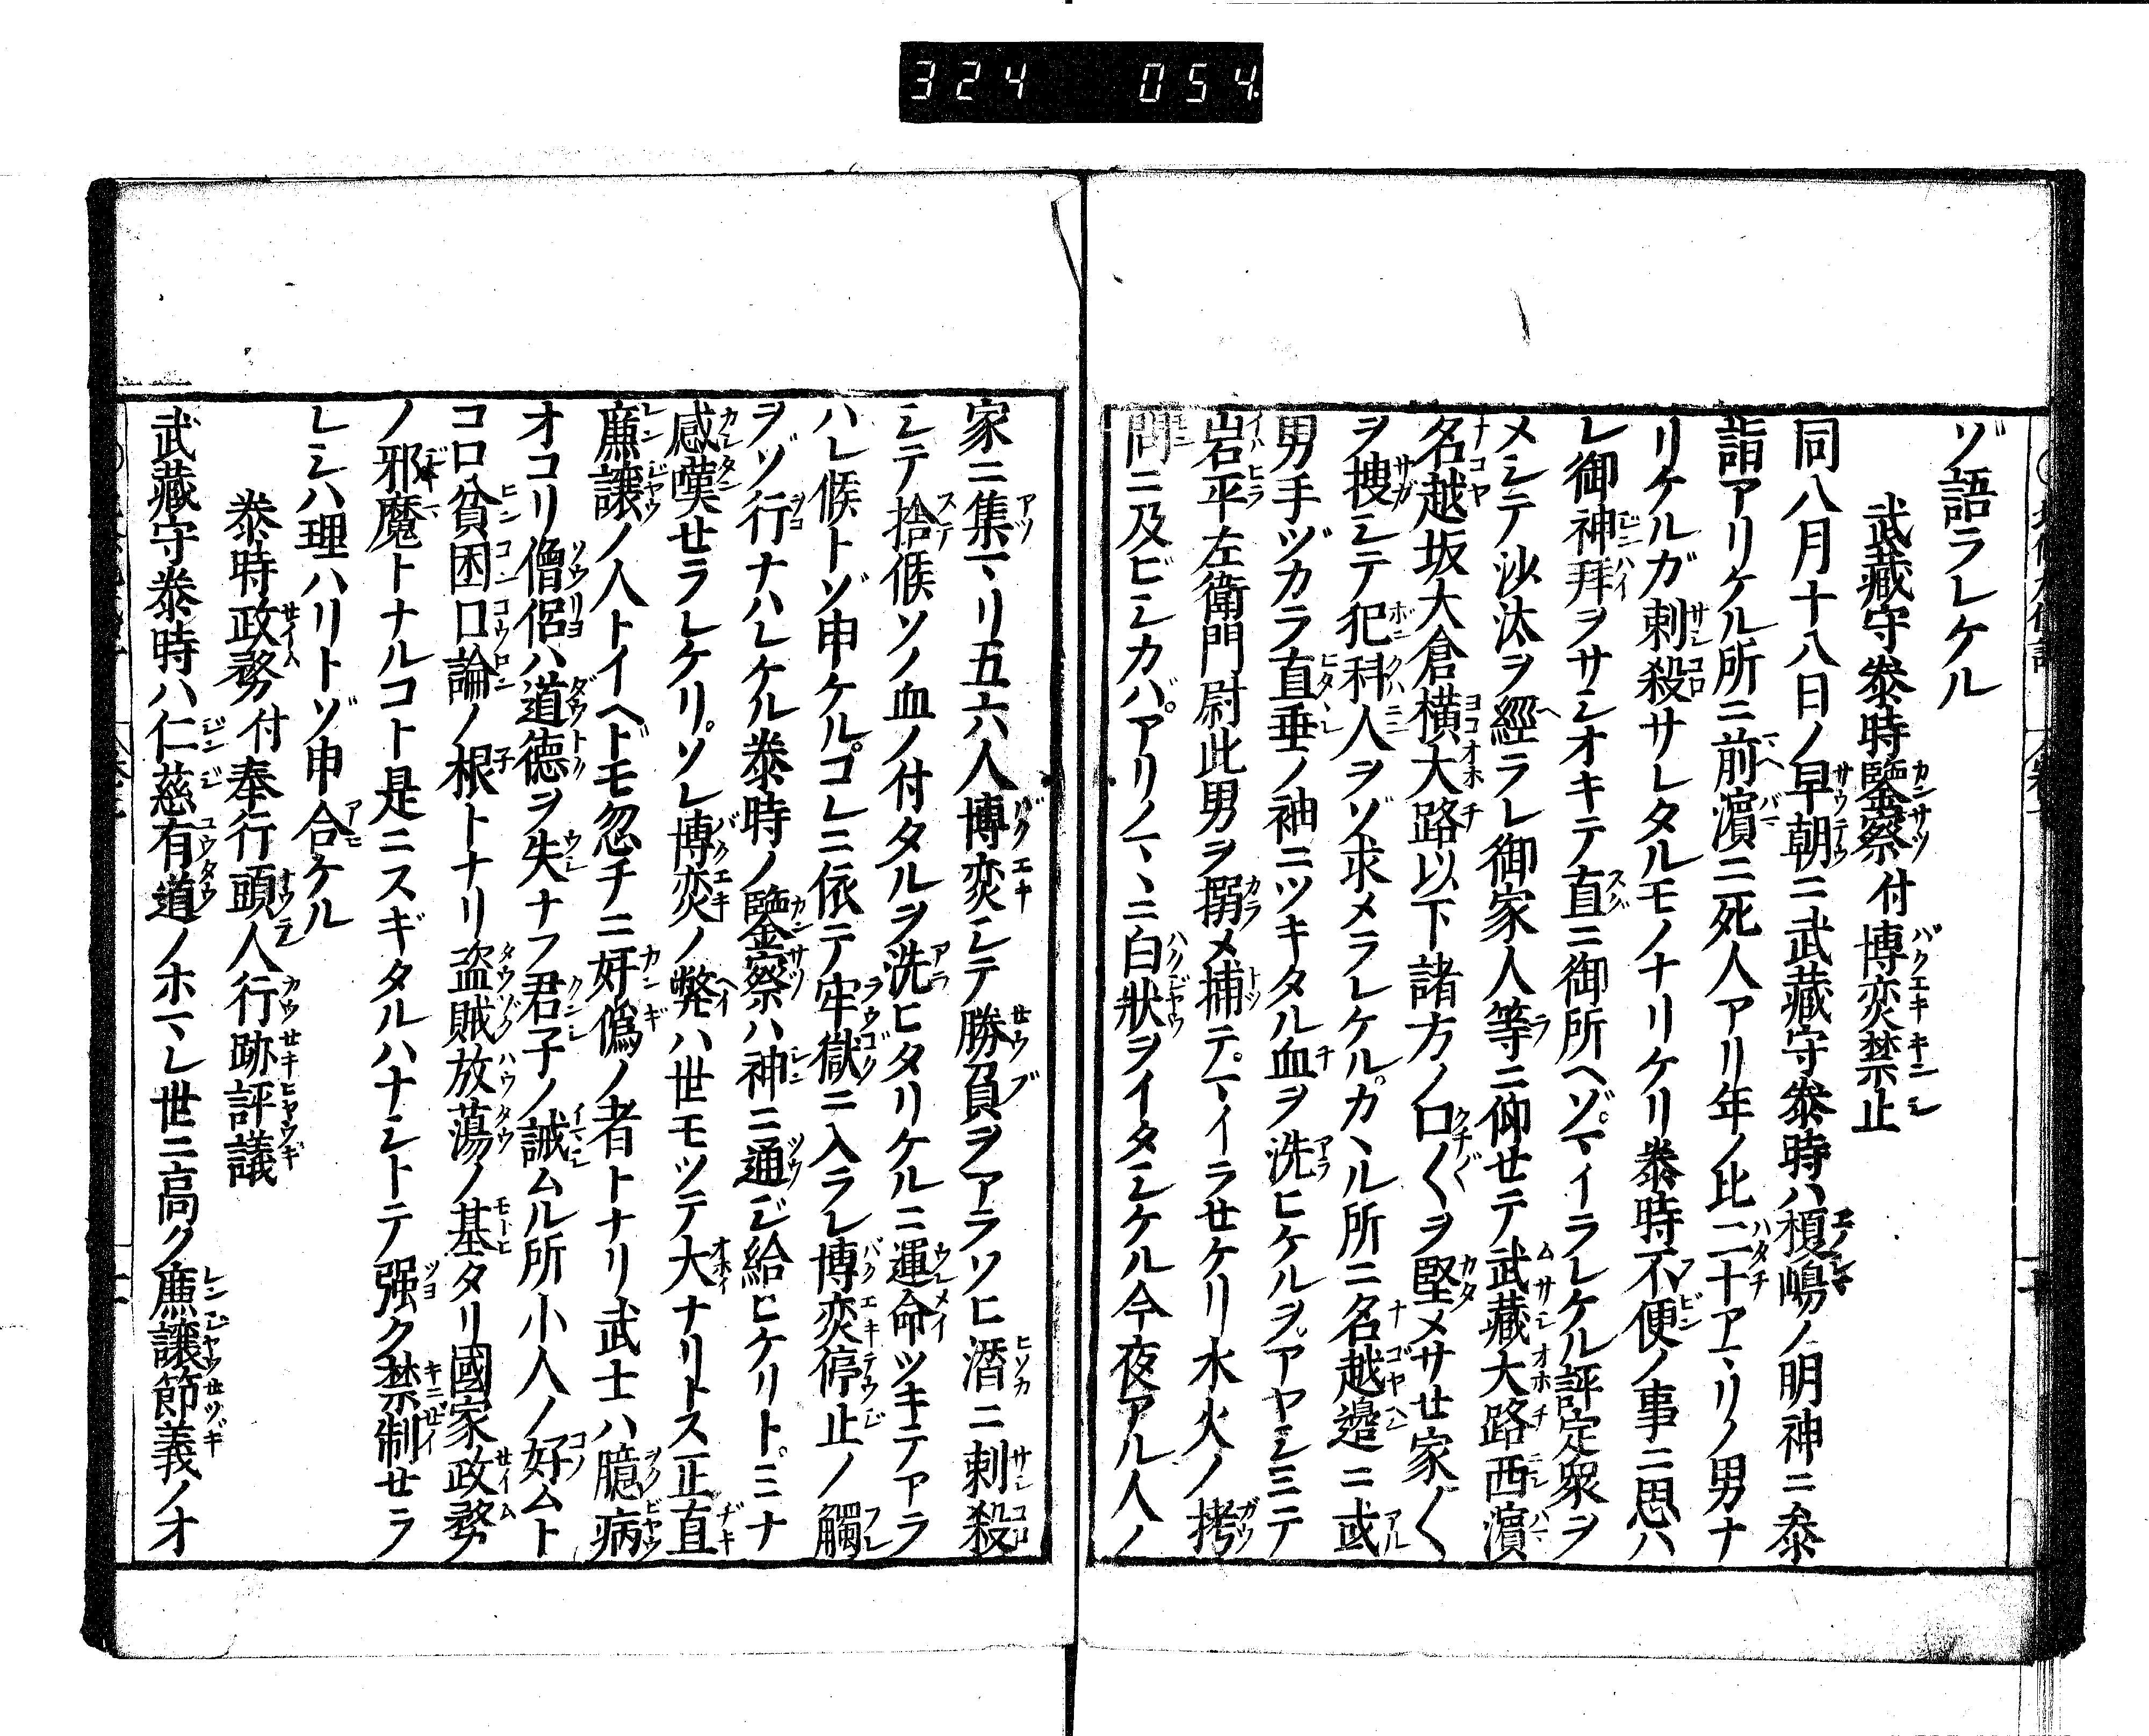 324 054
ゾ語ラレケル
武藏守泰時鑒察付博奕禁止
同八月十八日ノ早朝ニ武藏守泰時ハ榎嶋ノ明神ニ參
詣アリケル所ニ前濱ニ死人アリ年ノ比二十アマリノ男ナ
リケルガ刺殺サレタルモノナリケリ泰時不便ノ事ニ思ハ
レ御神拜ヲサシオキテ直ニ御所ヘゾマイラレケル評定衆ヲ
メシテ沙汰ヲ經ラレ御家人等ニ仰せテ武藏大路西濱
名越坂大倉横大路以下諸方ノ口〱ヲ堅メサせ家〱
ヲ搜シテ犯科人ヲゾ求メラレケルカヽル所ニ名越邉ニ或
男手ヅカラ直垂ノ袖ニツキタル血ヲ洗ヒケルヲアヤシミテ
岩平左衛門尉此男ヲ搦メ捕テマイラせケリ水火ノ拷
問ニ及ビシカバアリノマヽニ白狀ヲイタシケル今夜アル人ノ
家ニ集マリ五六人博奕シテ勝負ヲアラソヒ潛ニ刺殺
シテ捨候ソノ血ノ付タルヲ洗ヒタリケルニ運命ツキテアラ
ハレ候トゾ申ケルコレニ依テ牢獄ニ入ラレ博奕停止ノ觸
ヲゾ行ナハレケル泰時ノ鑒察ハ神ニ通ジ給ヒケリトミナ
感嘆せラレケリソレ博奕ノ弊ハ世モツテ大ナリトス正直
廉讓ノ人トイヘドモ忽チニ奸僞ノ者トナリ武士ハ臆病
オコリ僧侶ハ道德ヲ失ナフ君子ノ誡ムル所小人ノ好ムト
コロ貧困口論ノ根トナリ盜賊放蕩ノ基タリ國家政務
ノ邪魔トナルコト是ニスギタルハナシトテ强ク禁制せラ
レシハ理ハリトゾ申合ケル
泰時政務付奉行頭人行跡評議
武藏守泰時ハ仁慈有道ノホマレ世ニ高ク廉讓節義ノオ